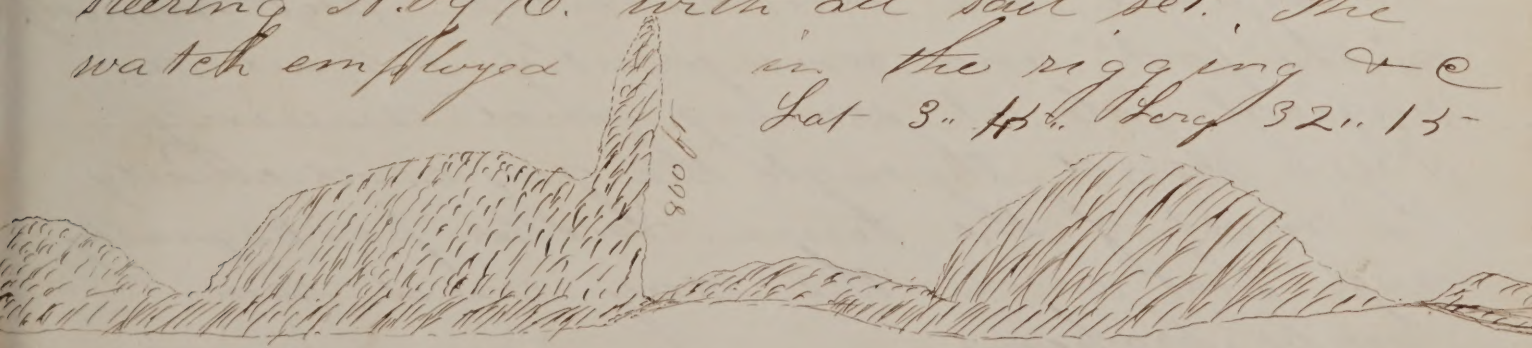 steering N. by E. with all sail set. The
watch employed in the rigging & c
Lat 3.. 45.. Long 32.. 15
800 ft